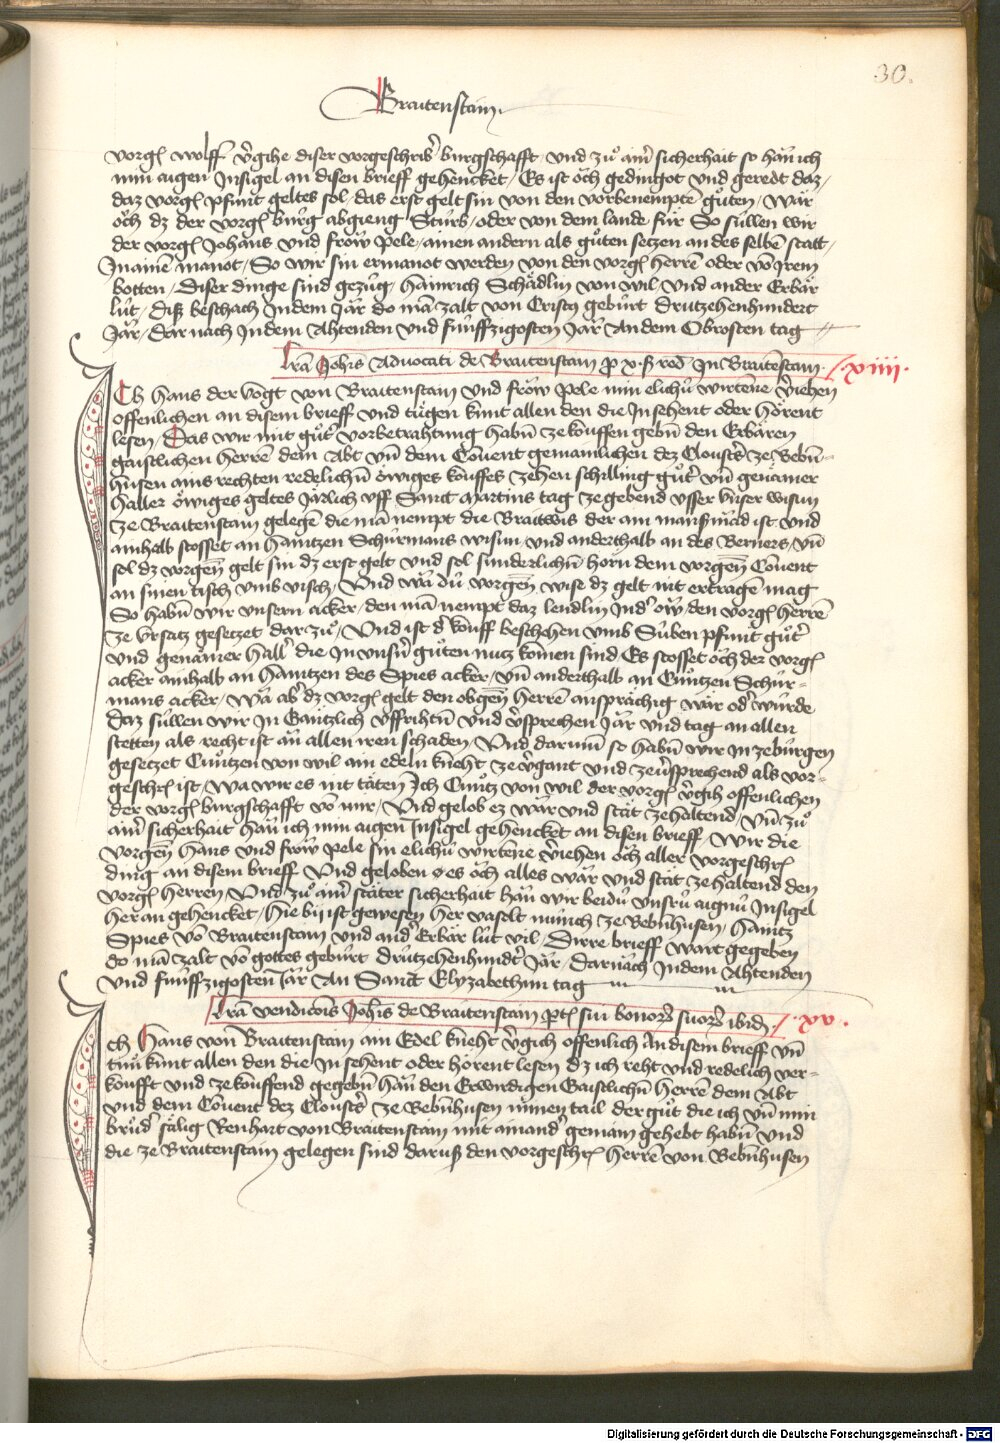 30.
Braitenstain.
vorgẽ wolff v̉gihe diser vorgeschribẽ burgschafft, und zů ainr̉ sicherhait so hañ ich
min aigen Insigel an disen brieff gehencket, Es ist öch gedingot und geredt daz,
daz vorgẽ pfunt geltes sol, das erst gelt sin von den vorbenemptẽ gůten, Wär
öch dz der vorgẽ burg abgieng Sturb, oder von dem lande für So sullen wir
der vorgẽ Johans und frow Pele, ainen andern als gůten setzen an des selbẽ statt,
In ainẽ manot, So wir sin ermanot werden von den vorgẽ herrẽ oder võ Irem
botten, Diser dinge sind gezüg, hainrich Schädlin von wil, und ander Erbär
lüt, Diß beschach In dem Jär do mã zalt von Cristz gebürt Drutzehenhundert
Jär, Dar nach In dem Ahtenden und fünffzigosten Jar An dem Obrosten tag
Lrã Johis Advocati de Braitenstain p x ß red In Braitẽstain. xiiii.
Ich hans der vogt von Braitenstain und frow Pele min elichü wirtene v̉iehen
offenlichen an disem brieff und tůgen kunt allen den die In sehent oder hörent
lesen, Das wir mit gůt̉ vorbetrahtung habñ ze kouffen gebñ den Erbären
gaistlichen herrẽ dem Abt vñ dem Cõvent gemainlichen dez Closters̉ ze Bebñ-
husen ains rechten redelichñ öwiges kouffes zehen schilling gůt̉ vñ genämer
haller öwiges geltes Järlich uff Sanct Martins tag ze gebend usser unser wisun
ze Braitenstain gelegẽ die mã nempt die Braitwis der ain mansmäd ist und
ainhalb stosset an haintzen Schürmans wisun, und anderthalb an des Berners, vñ
sol dz vorgen̄ gelt sin dz erst gelt und sol sunderlichñ hörn dem vorgen̄ Cõvent
an sinen tisch umb visch, Und wa dü vorgen̄ wise dz gelt nit ertragẽ mag
So habñ wir unsern acker, den mã nempt daz lendlin Ind̉ ow, den vorgẽ herrẽ
ze ursatz gesetzet dar zů, Und ist d̉ kouff beschehen umb Süben pfunt gůt̉
und genämer hall̉ die In unsñ gůten nutz komen sind Es stosset öch der vorgẽ
acker ainhalb an haintzen des Spies acker, vñ anderthalb an Cůntzen Schür-
mans acker, Wa ab̉ dz vorgẽ gelt den obgen̄ herrẽ ansprächig wär od̉ wurde
Daz sullen wir In Gäntzlich uffrihtñ und v̉sprechen Jär und tag an allen
stetten als recht ist añ allen iren schaden, Und darum̃ so habñ wir In ze bürgen
gesetzet Cůntzen von wil ain edeln kneht ze v̉gant und ze v̉sprechend als vor-
geschrẽ ist, Wa wir es nit tätẽ Ich Cůntz von wil der vorgẽ v̉gih offenlichen
der vorgẽ burgschafft võ mir, Und gelob ez wär und stät ze haltend, Vñ zů
ainr̉ sicherhait hañ ich min aigen Insigel gehencket an disen brieff, Wir die
vorgen̄ hans und frow Pele sin elichü wirtene v̉iehen öch aller vorgeschrẽ
ding an disem brieff Und geloben es öch alles wär und stät ze haltend den
vorgẽ herren, Und zů ainr̉ stäter sicherhait hañ wir beidü unsrü aignü Insigel
her an gehencket, hie bij ist gewesen her vaselt münch ze Bebñhusen, haintz
Spies võ Braitenstain und and̉ Erbär lüt vil, Dirre brieff wart gegeben
do mã zalt võ gottes gebürt drützehenhundt̉ Jär, Darnäch In dem Ahtenden
und fünffzigosten Jär An Sanct Elyzabethun tag
Lrã vendicõis Johis de Braitenstain ptẽ sui bonorũ suorũ ibid. xv.
Ich hans von Braitenstain ain Edel kneht v̉gich offenlich An disem brieff vñ
tůn kunt allen den die In sehent oder hörent lesen dz ich reht und redelich ver-
koufft und ze kouffend gegebñ hañ den Erwirdigen Gaistlichñ herrẽ dem Abt
und dem Cõvent dez Closters̉ ze Bebñhusen minen tail der gůt die ich vñ min
brůd̉ sälig Renhart von Braitenstain mit ainand̉ gemain gehebt habñ und
die ze Braitenstain gelegen sind daruß den vorgeschrẽ herrẽ von Bebñhusen
Digitalisierung gefördert durch die Deutsche Forschungsgemeinschaft - DFG